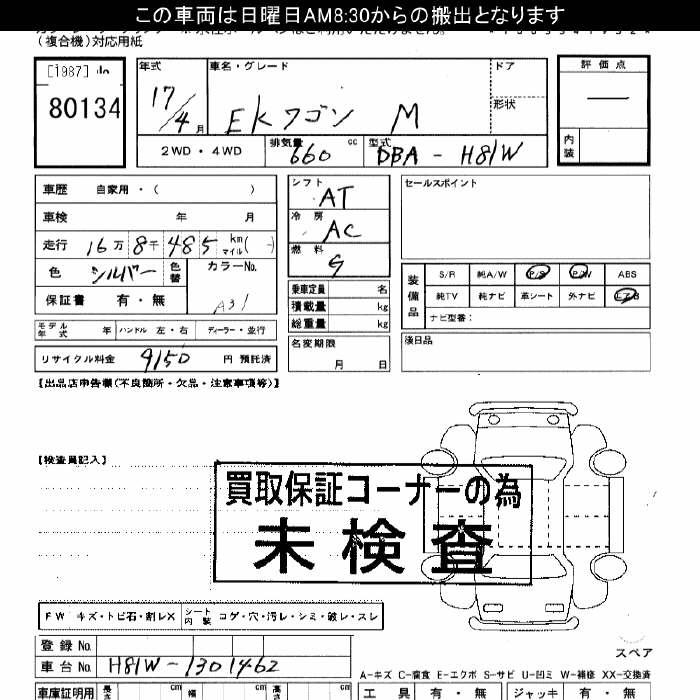 この車両は日曜日AM8:30からの搬出となります
(複合機)対応用紙
[1987]
80134
年式
17/4月
車名・グレード
EKワゴン M
ドア
形状
2WD・4WD
排気量
660 cc
型式
DBA - H81W
評価点
—
内装
車歴 自家用・( )
車検 年 月
走行 16万8千485 km マイル( )
色 シルバー 色替
カラーNo.
A31
保証書 有・無
モデル年式 年 ハンドル 左・右 ディーラー・並行
リサイクル料金 9150 円 預託済
シフト
AT
冷房
AC
燃料
G
乗車定員 名
積載量 kg
総重量 kg
名変期限
月 日
セールスポイント
装備品
S/R 純A/W P/S P/W ABS
純TV 純ナビ 革シート 外ナビ エアB
ナビ型番:
後日品
【出品店申告欄(不良箇所・欠品・注意事項等)】
【検査員記入】
買取保証コーナーの為
未検査
FW キズ・トビ石・割レX シート内装 コゲ・穴・汚レ・シミ・破レ・スレ
登録No.
車台No. H81W-1301462
スペア
A-キズ C-腐食 E-エクボ S-サビ U-凹ミ W-補修 XX-交換済
車庫証明用 長さ cm 幅 cm 高さ cm
工具 有・無 ジャッキ 有・無